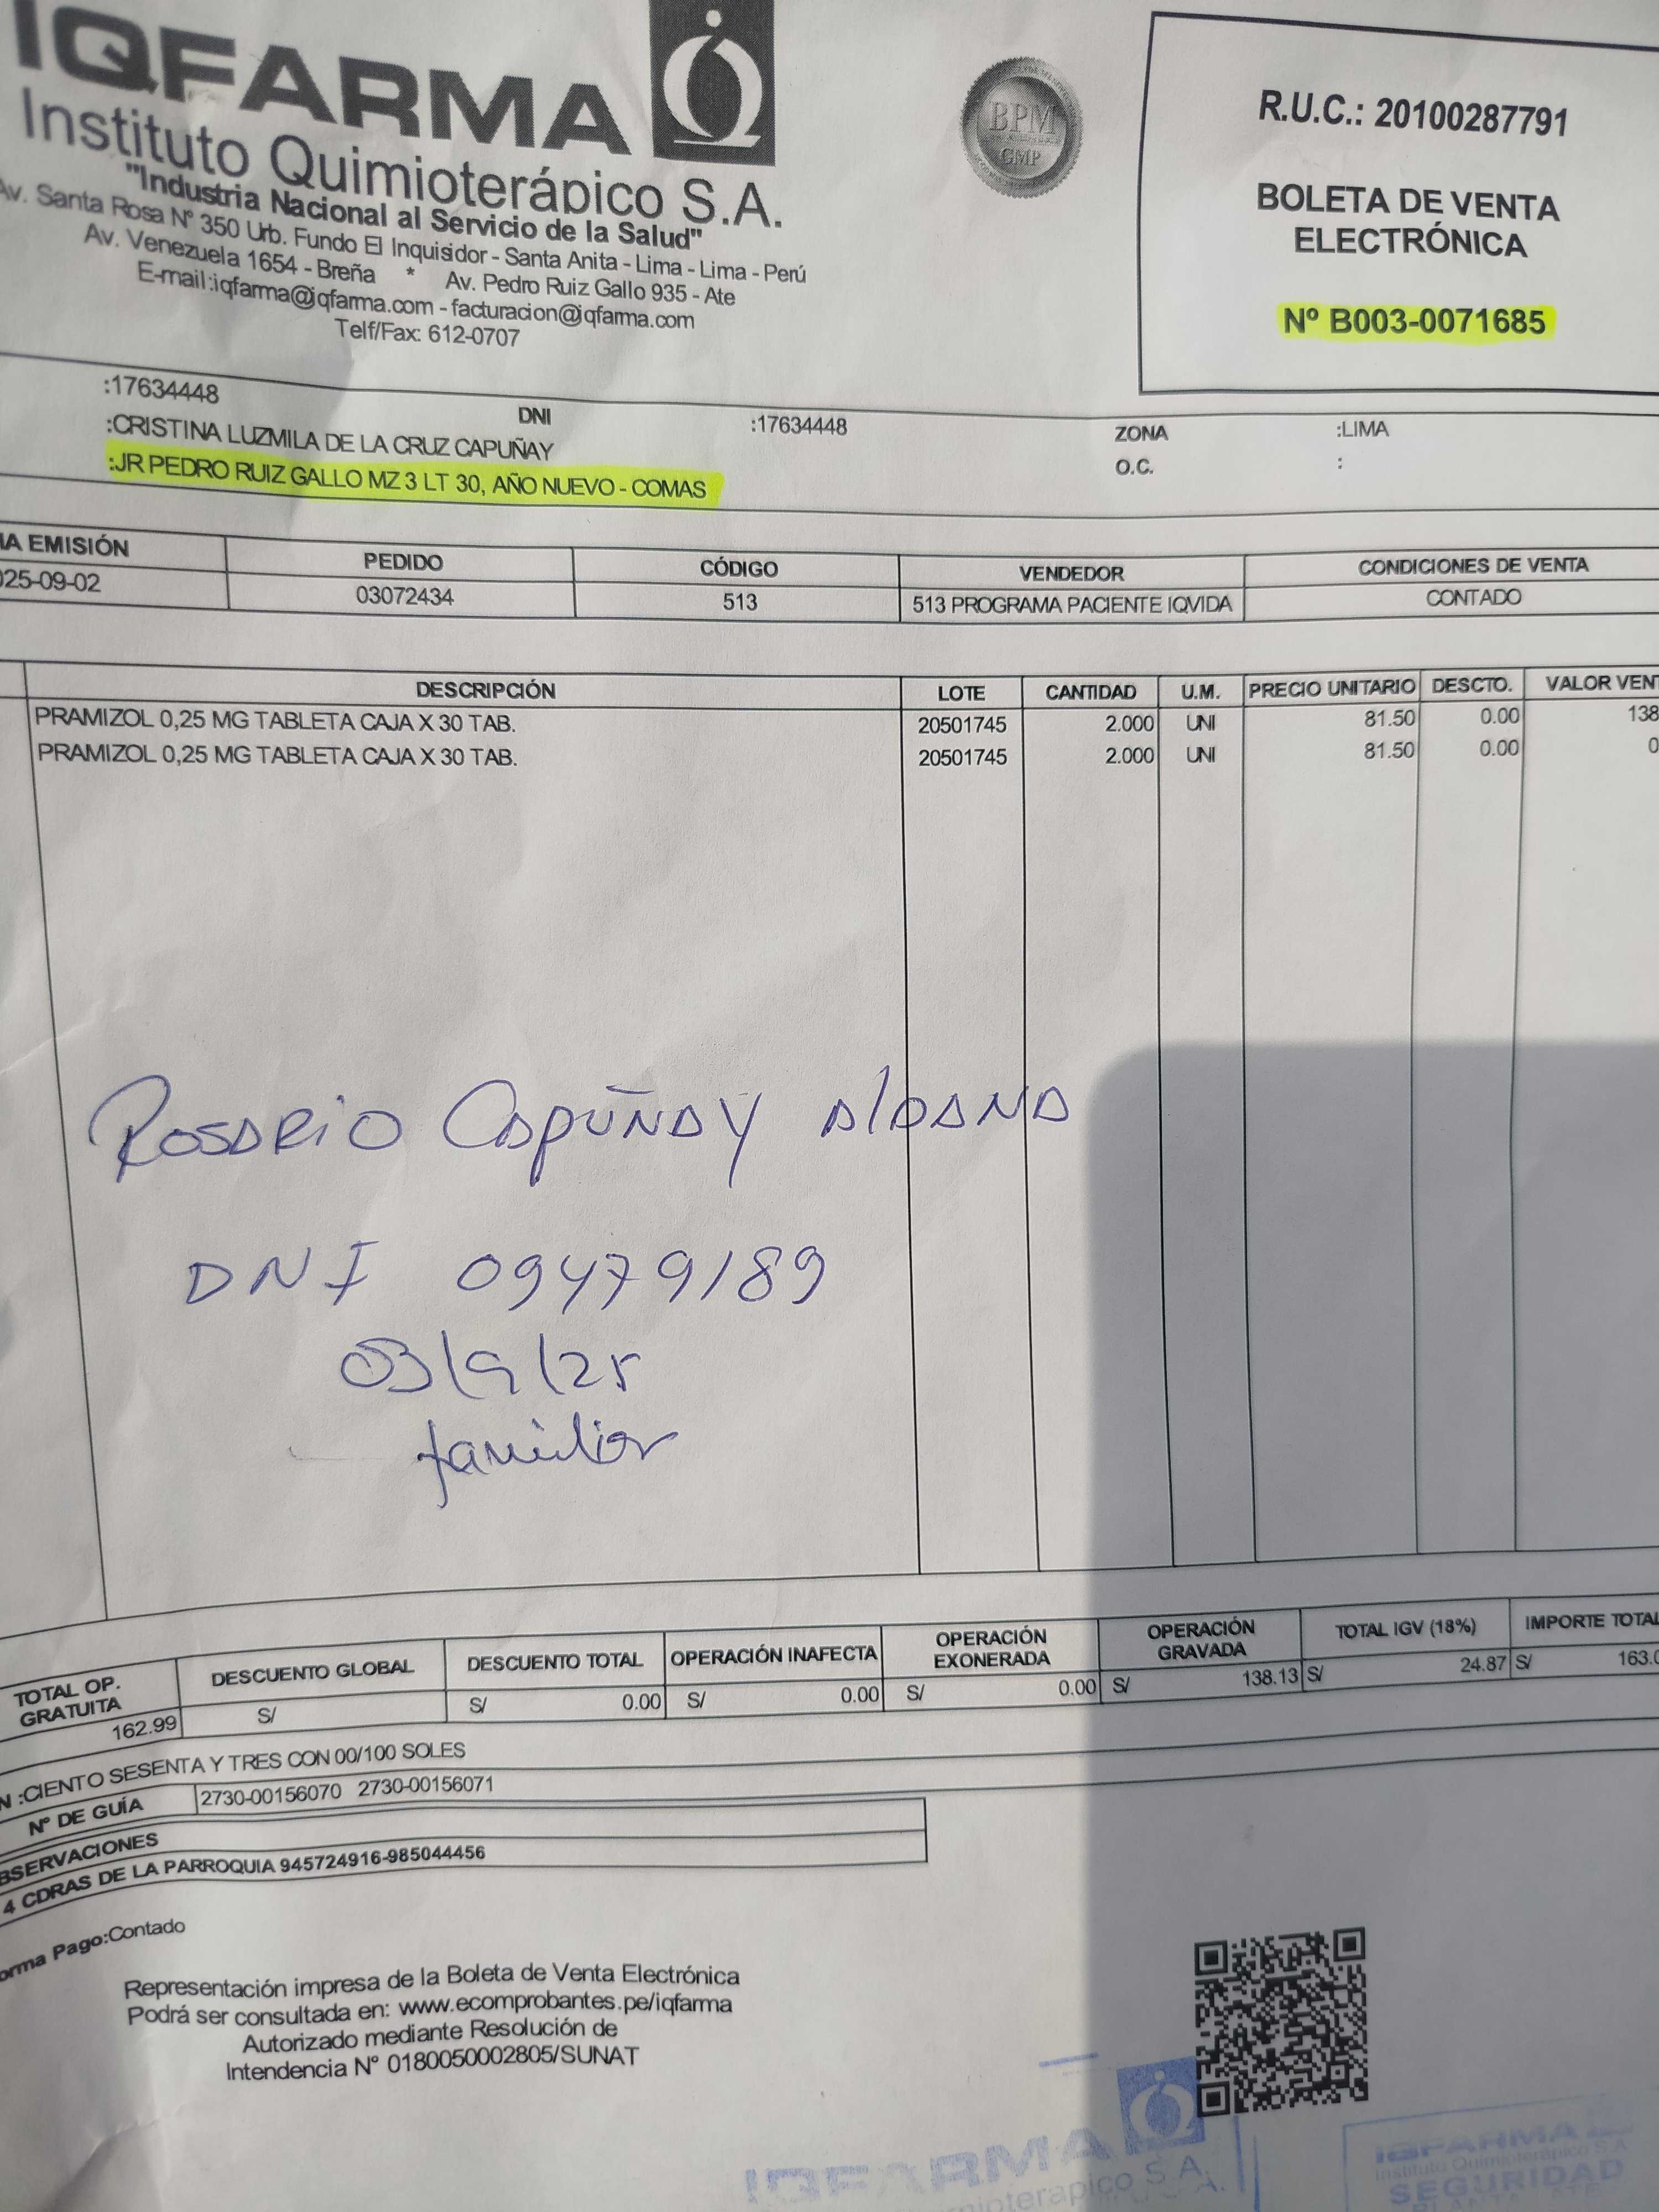 IQFARMA
Instituto Quimioterápico S.A.
"Industria Nacional al Servicio de la Salud"
Av. Santa Rosa Nº 350 Urb. Fundo El Inquisidor - Santa Anita - Lima - Lima - Perú
Av. Venezuela 1654 - Breña * Av. Pedro Ruiz Gallo 935 - Ate
E-mail:iqfarma@iqfarma.com - facturacion@iqfarma.com
Telf/Fax: 612-0707
BPM
GMP
R.U.C.: 20100287791
BOLETA DE VENTA
ELECTRÓNICA
Nº B003-0071685
:17634448 DNI :17634448 ZONA :LIMA
:CRISTINA LUZMILA DE LA CRUZ CAPUÑAY O.C. :
:JR PEDRO RUIZ GALLO MZ 3 LT 30, AÑO NUEVO - COMAS
EMISIÓN PEDIDO CÓDIGO VENDEDOR CONDICIONES DE VENTA
025-09-02 03072434 513 513 PROGRAMA PACIENTE IQVIDA CONTADO
DESCRIPCIÓN LOTE CANTIDAD U.M. PRECIO UNITARIO DESCTO. VALOR VENT
PRAMIZOL 0,25 MG TABLETA CAJA X 30 TAB. 20501745 2.000 UNI 81.50 0.00 138
PRAMIZOL 0,25 MG TABLETA CAJA X 30 TAB. 20501745 2.000 UNI 81.50 0.00 0
Rosario Capuñay Aldana
DNI 09479189
03/9/25
familiar
TOTAL OP. GRATUITA DESCUENTO GLOBAL DESCUENTO TOTAL OPERACIÓN INAFECTA OPERACIÓN EXONERADA OPERACIÓN GRAVADA TOTAL IGV (18%) IMPORTE TOTAL
162.99 S/ S/ 0.00 S/ 0.00 S/ 0.00 S/ 138.13 S/ 24.87 S/ 163.0
N :CIENTO SESENTA Y TRES CON 00/100 SOLES
Nº DE GUÍA 2730-00156070 2730-00156071
BSERVACIONES
4 CDRAS DE LA PARROQUIA 945724916-985044456
orma Pago:Contado
Representación impresa de la Boleta de Venta Electrónica
Podrá ser consultada en: www.ecomprobantes.pe/iqfarma
Autorizado mediante Resolución de
Intendencia N° 0180050002805/SUNAT
IQFARMA
IQFARMA
Instituto Quimioterápico S.A.
SEGURIDAD